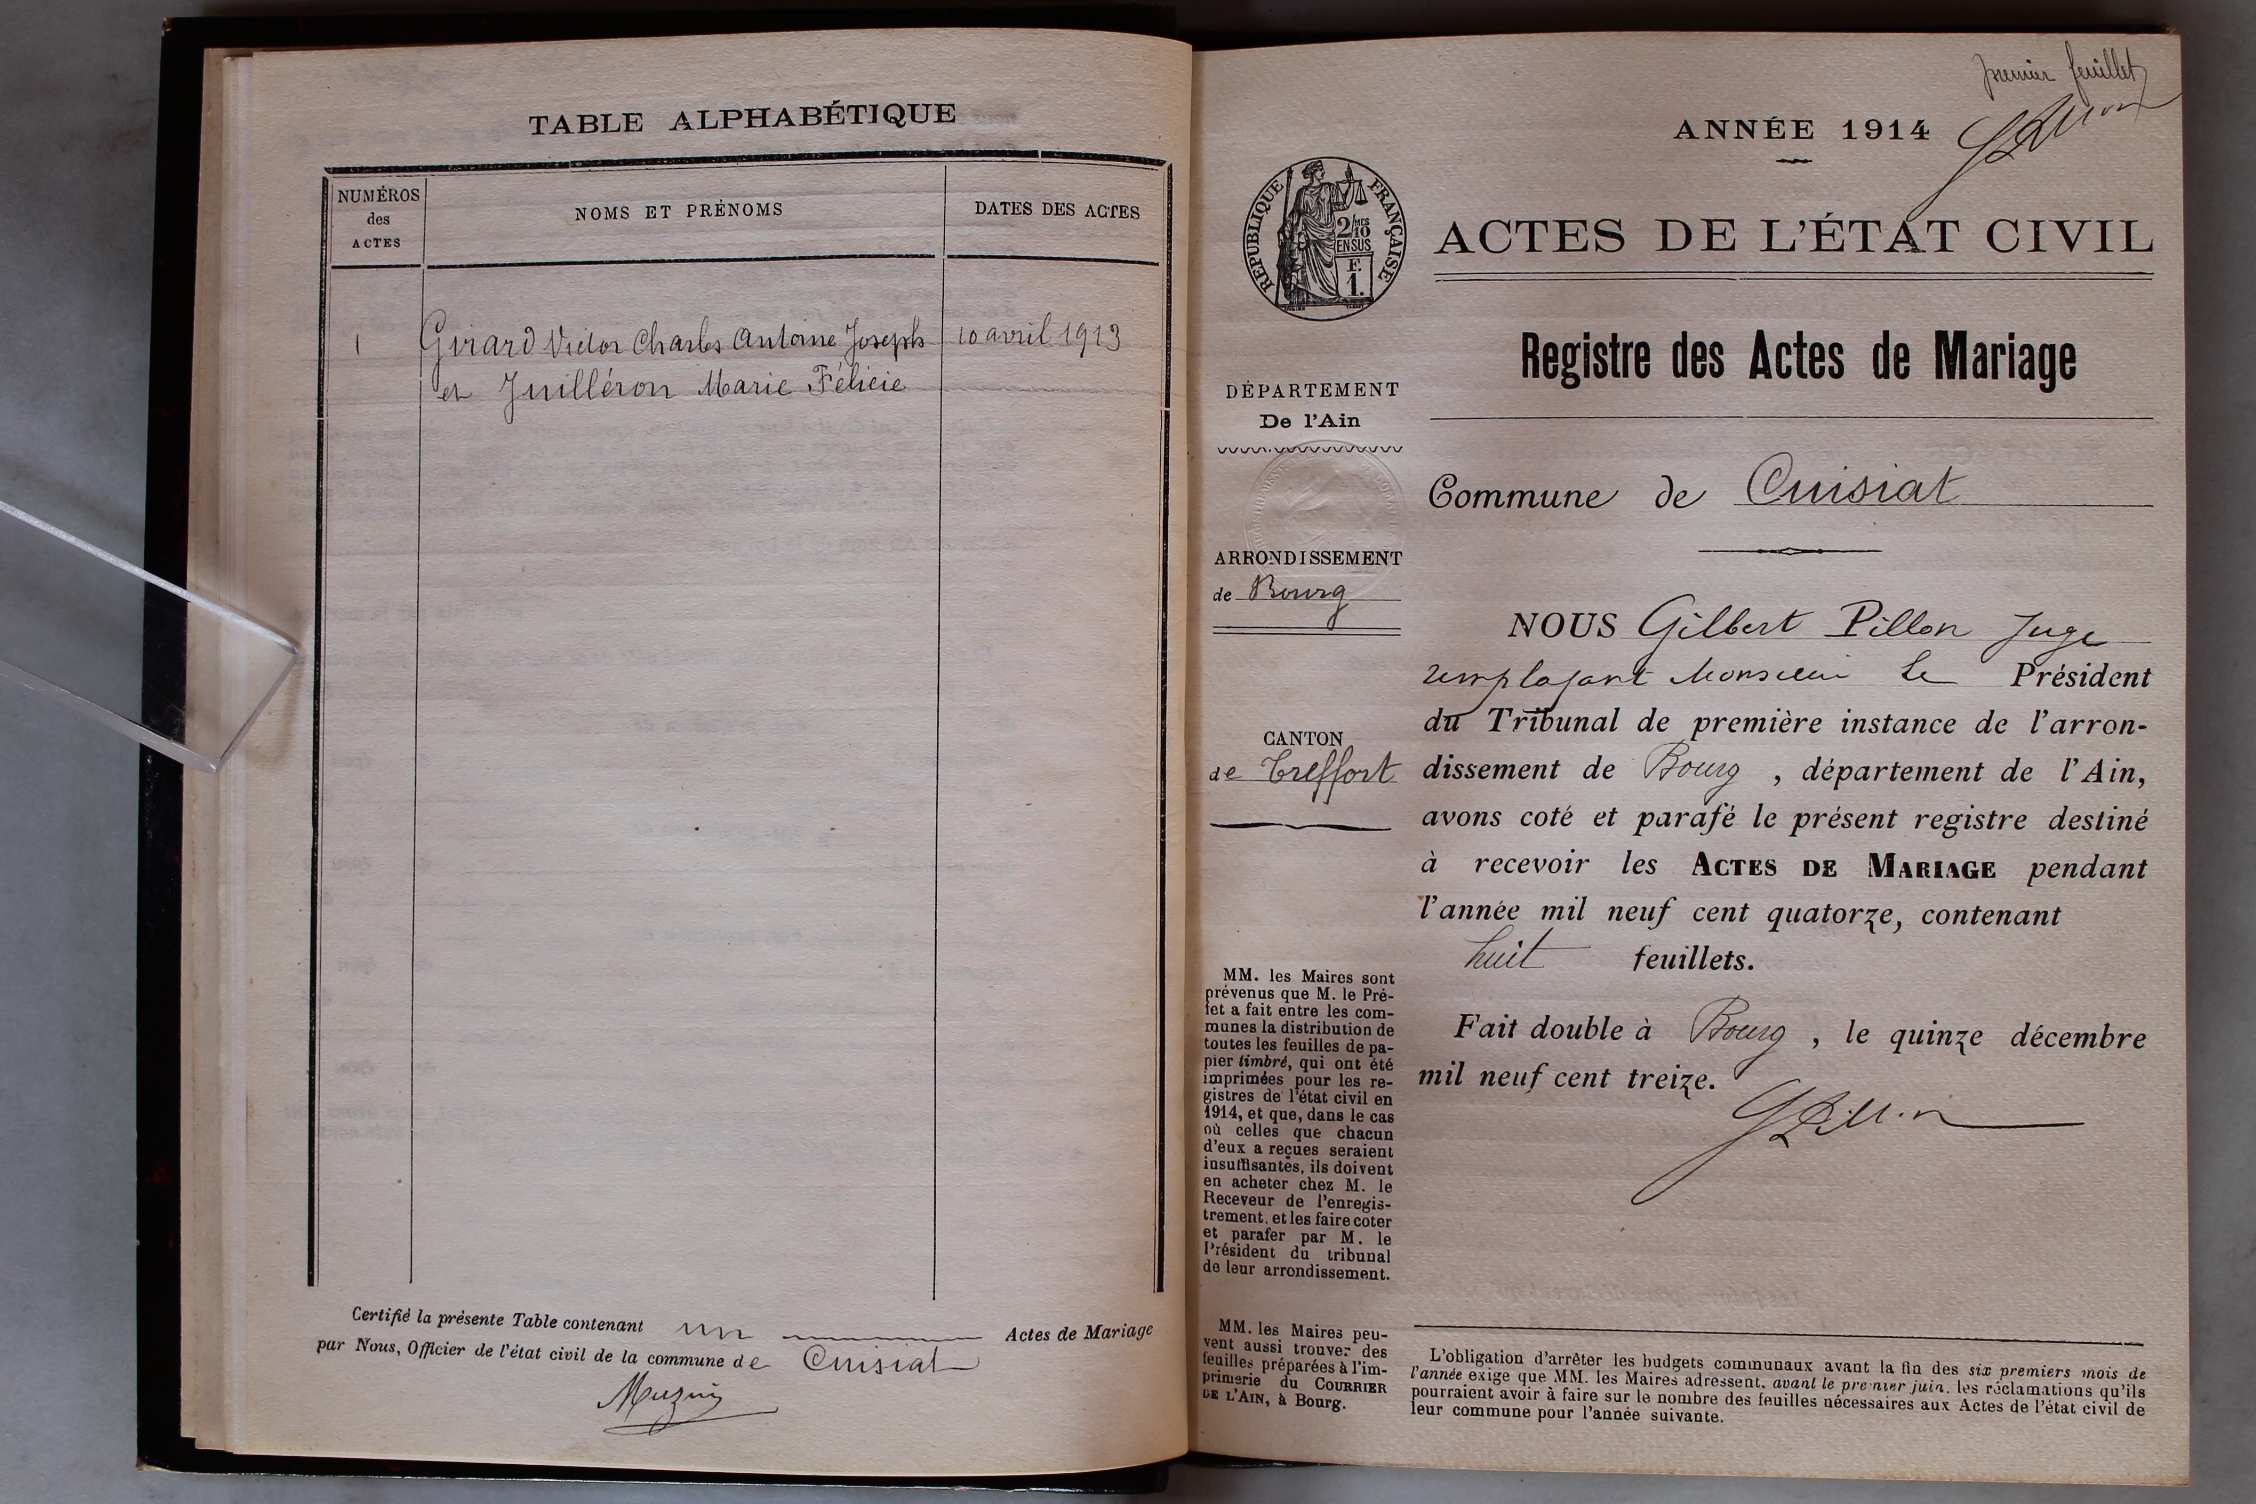 TABLE ALPHABÉTIQUE
NUMÉROS
des
ACTES
NOMS ET PRÉNOMS
DATES DES ACTES
1 Girard Victor Charles Antoine Joseph 10 avril 1913
et Juilléron Marie Félicie
Certifié la présente Table contenant un Actes de Mariage
par Nous, Officier de l'état civil de la commune de Cuisiat
premier feuillet
GPillon
ANNÉE 1914
RÉPUBLIQUE FRANÇAISE
2/10MES
EN SUS
F.
1.
ACTES DE L'ÉTAT CIVIL
Registre des Actes de Mariage
DÉPARTEMENT
De l'Ain
ARRONDISSEMENT
de Bourg
CANTON
de Treffort
MM. les Maires sont
prévenus que M. le Pré-
fet a fait entre les com-
munes la distribution de
toutes les feuilles de pa-
pier timbré, qui ont été
imprimées pour les re-
gistres de l'état civil en
1914, et que, dans le cas
où celles que chacun
d'eux a reçues seraient
insuffisantes, ils doivent
en acheter chez M. le
Receveur de l'enregis-
trement, et les faire coter
et parafer par M. le
Président du tribunal
de leur arrondissement.
MM. les Maires peu-
vent aussi trouver des
feuilles préparées à l'im-
primerie du COURRIER
DE L'AIN, à Bourg.
Commune de Cuisiat
NOUS Gilbert Pillon Juge
remplaçant Monsieur le Président
du Tribunal de première instance de l'arron-
dissement de Bourg, département de l'Ain,
avons coté et parafé le présent registre destiné
à recevoir les ACTES DE MARIAGE pendant
l'année mil neuf cent quatorze, contenant
huit feuillets.
Fait double à Bourg, le quinze décembre
mil neuf cent treize.
GPillon
L'obligation d'arrêter les budgets communaux avant la fin des six premiers mois de
l'année exige que MM. les Maires adressent, avant le premier juin, les réclamations qu'ils
pourraient avoir à faire sur le nombre des feuilles nécessaires aux Actes de l'état civil de
leur commune pour l'année suivante.